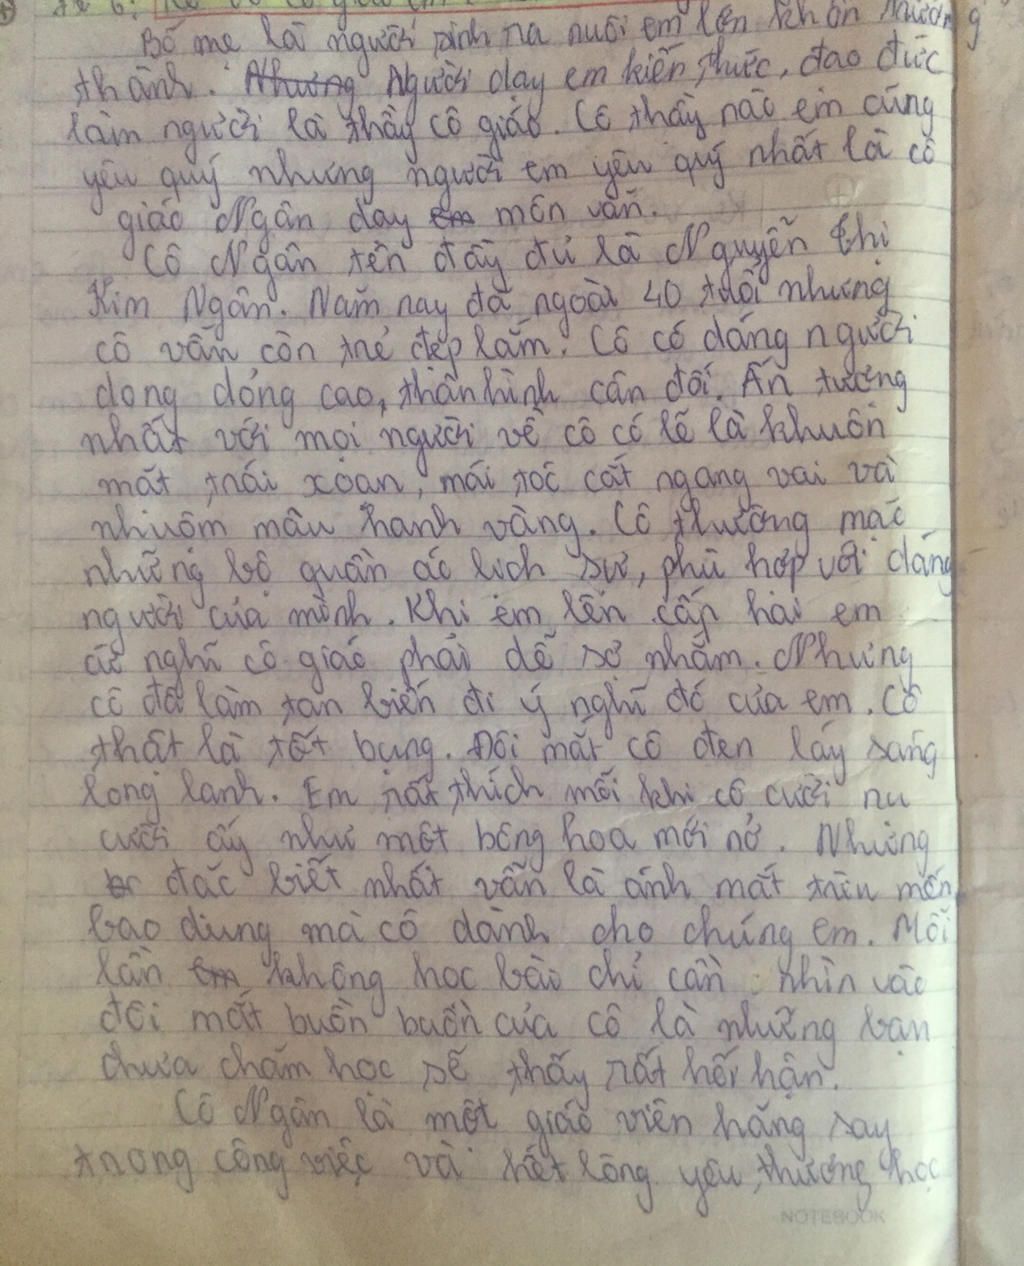 Bố mẹ là người sinh ra nuôi em lên khôn
thành. Nhưng Người dạy em kiến thức, đạo đức
làm người là thầy cô giáo. Cô thầy nào em cũng
yêu quý nhưng người em yêu quý nhất là cô
giáo Ngân dạy em môn văn.
Cô Ngân tên đầy đủ là Nguyễn Thị
Kim Ngân. Năm nay đã ngoài 40 tuổi nhưng
cô vẫn còn trẻ đẹp lắm. Cô có dáng người
dong dỏng cao, thân hình cân đối. Ấn tượng
nhất với mọi người về cô có lẽ là khuôn
mặt trái xoan, mái tóc cắt ngang vai và
nhuộm mầu hanh vàng. Cô thường mặc
những bộ quần áo lịch sự, phù hợp với dáng
người của mình. Khi em lên cấp hai em
cứ nghĩ cô giáo phải dễ sợ nhắm. Nhưng
cô đã làm tan biến đi ý nghĩ đó của em. Cô
thật là tốt bụng. Đôi mắt cô đen láy sáng
long lanh. Em rất thích mỗi khi cô cười nụ
cười ấy như một bông hoa mới nở. Nhưng
đặc biệt nhất vẫn là ánh mắt trìu mến
bao dung mà cô dành cho chúng em. Mỗi
lần em không học bào chỉ cần nhìn vào
đôi mắt buồn buồn của cô là những bạn
chưa chăm học sẽ thấy rất hối hận.
Cô Ngân là một giáo viên hăng say
trong công việc và hết lòng yêu thương học
NOTEBOOK